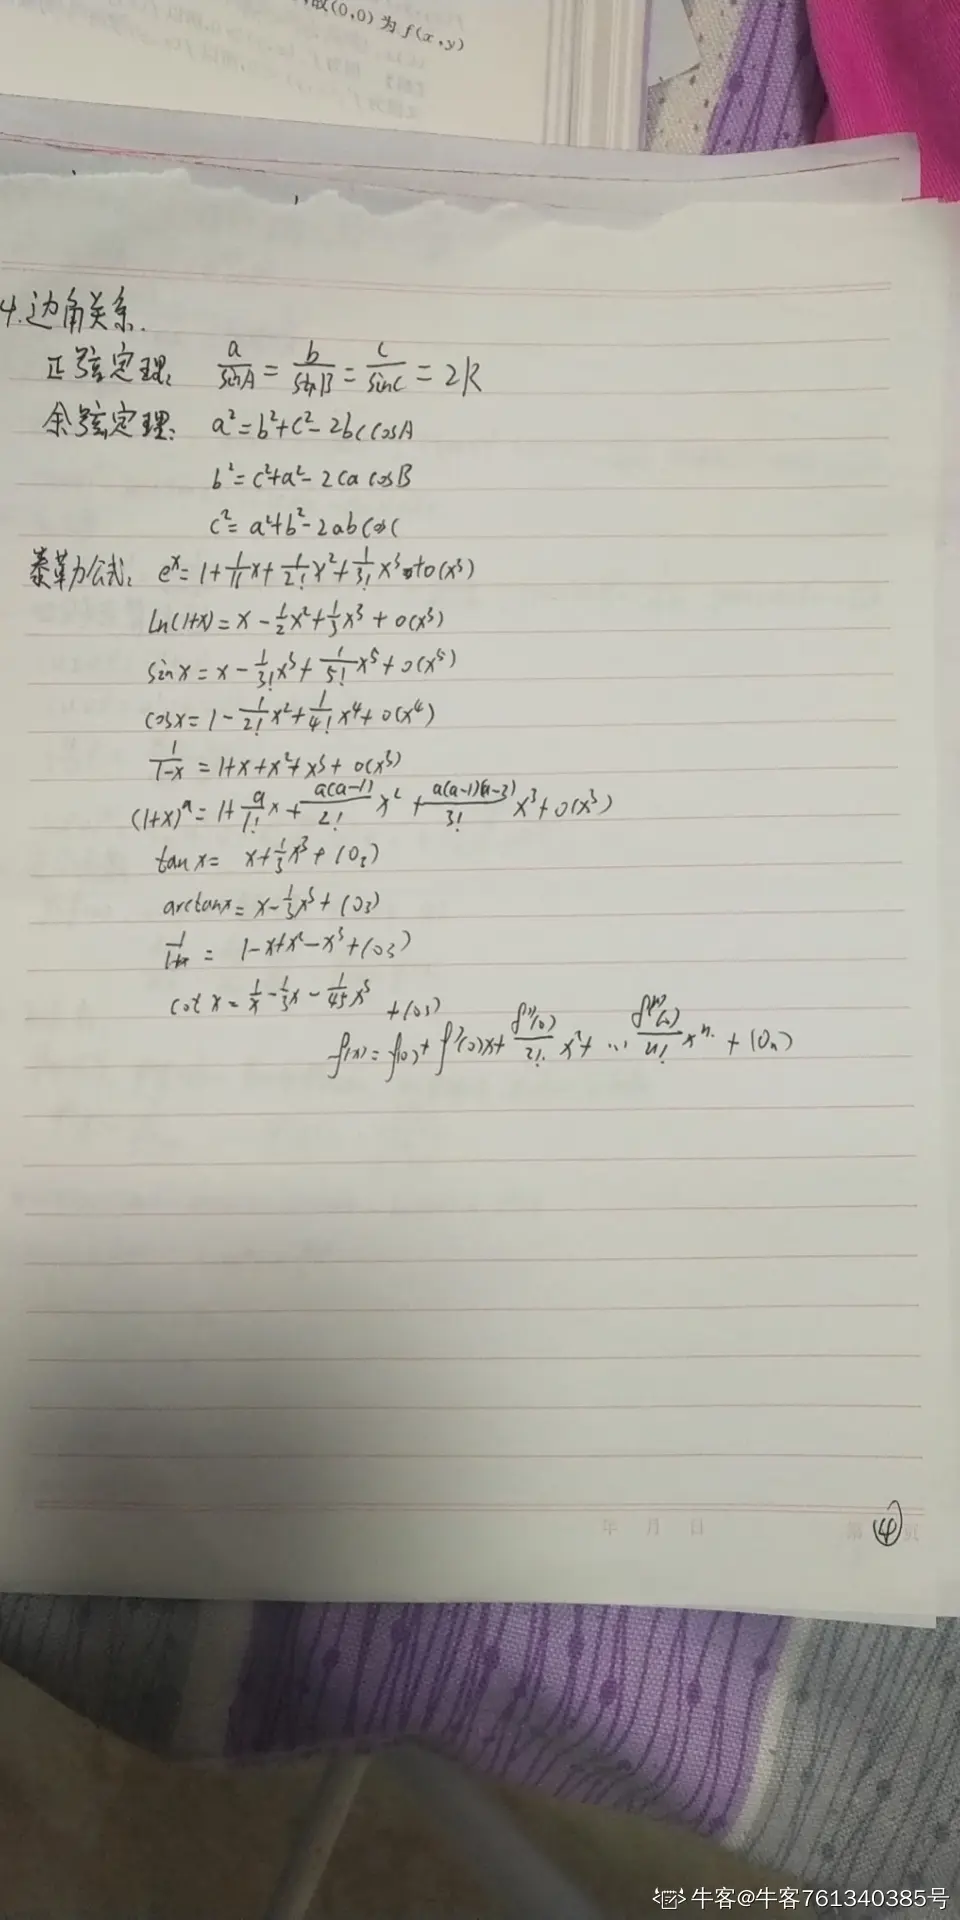 故(0,0)为f(x,y)
4.边角关系.
正弦定理: a/sinA = b/sinB = c/sinC = 2R
余弦定理: a²=b²+c²-2bccosA
b²=c²+a²-2cacosB
c²=a²+b²-2abcosC
泰勒公式: eˣ=1+1/1!x+1/2!x²+1/3!x³+o(x³)
ln(1+x)=x-1/2x²+1/3x³+o(x³)
sinx=x-1/3!x³+1/5!x⁵+o(x⁵)
cosx=1-1/2!x²+1/4!x⁴+o(x⁴)
1/1-x=1+x+x²+x³+o(x³)
(1+x)ᵃ=1+a/1!x+a(a-1)/2!x²+a(a-1)(a-3)/3!x³+o(x³)
tanx= x+1/3x³+(o₃)
arctanx=x-1/3x³+(o3)
1/1+x= 1-x+x²-x³+(o3)
cotx=1/x-1/3x-1/45x³+(o3)
f(x)=f(0)+f'(0)x+f''(0)/2!x²+...f⁽ⁿ⁾(0)/n!xⁿ+(On)
年 月 日 第④页
牛客@牛客761340385号